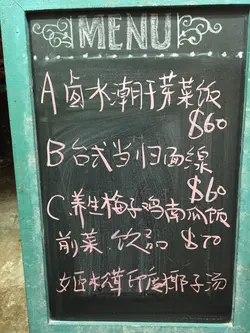 MENU
A 卤水潮干芽菜饭
$60
B 台式当归面線
$60
C 养生梅子鸡南瓜饭
前菜 饮品 $70
椰子汤